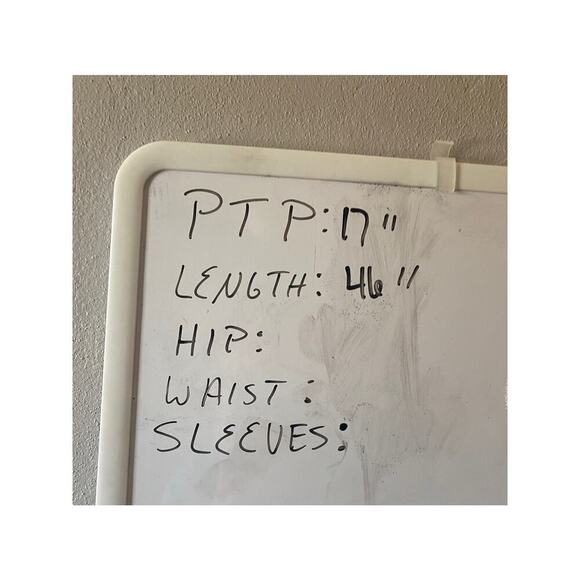 PTP: 17"
LENGTH: 46"
HIP:
WAIST:
SLEEVES: